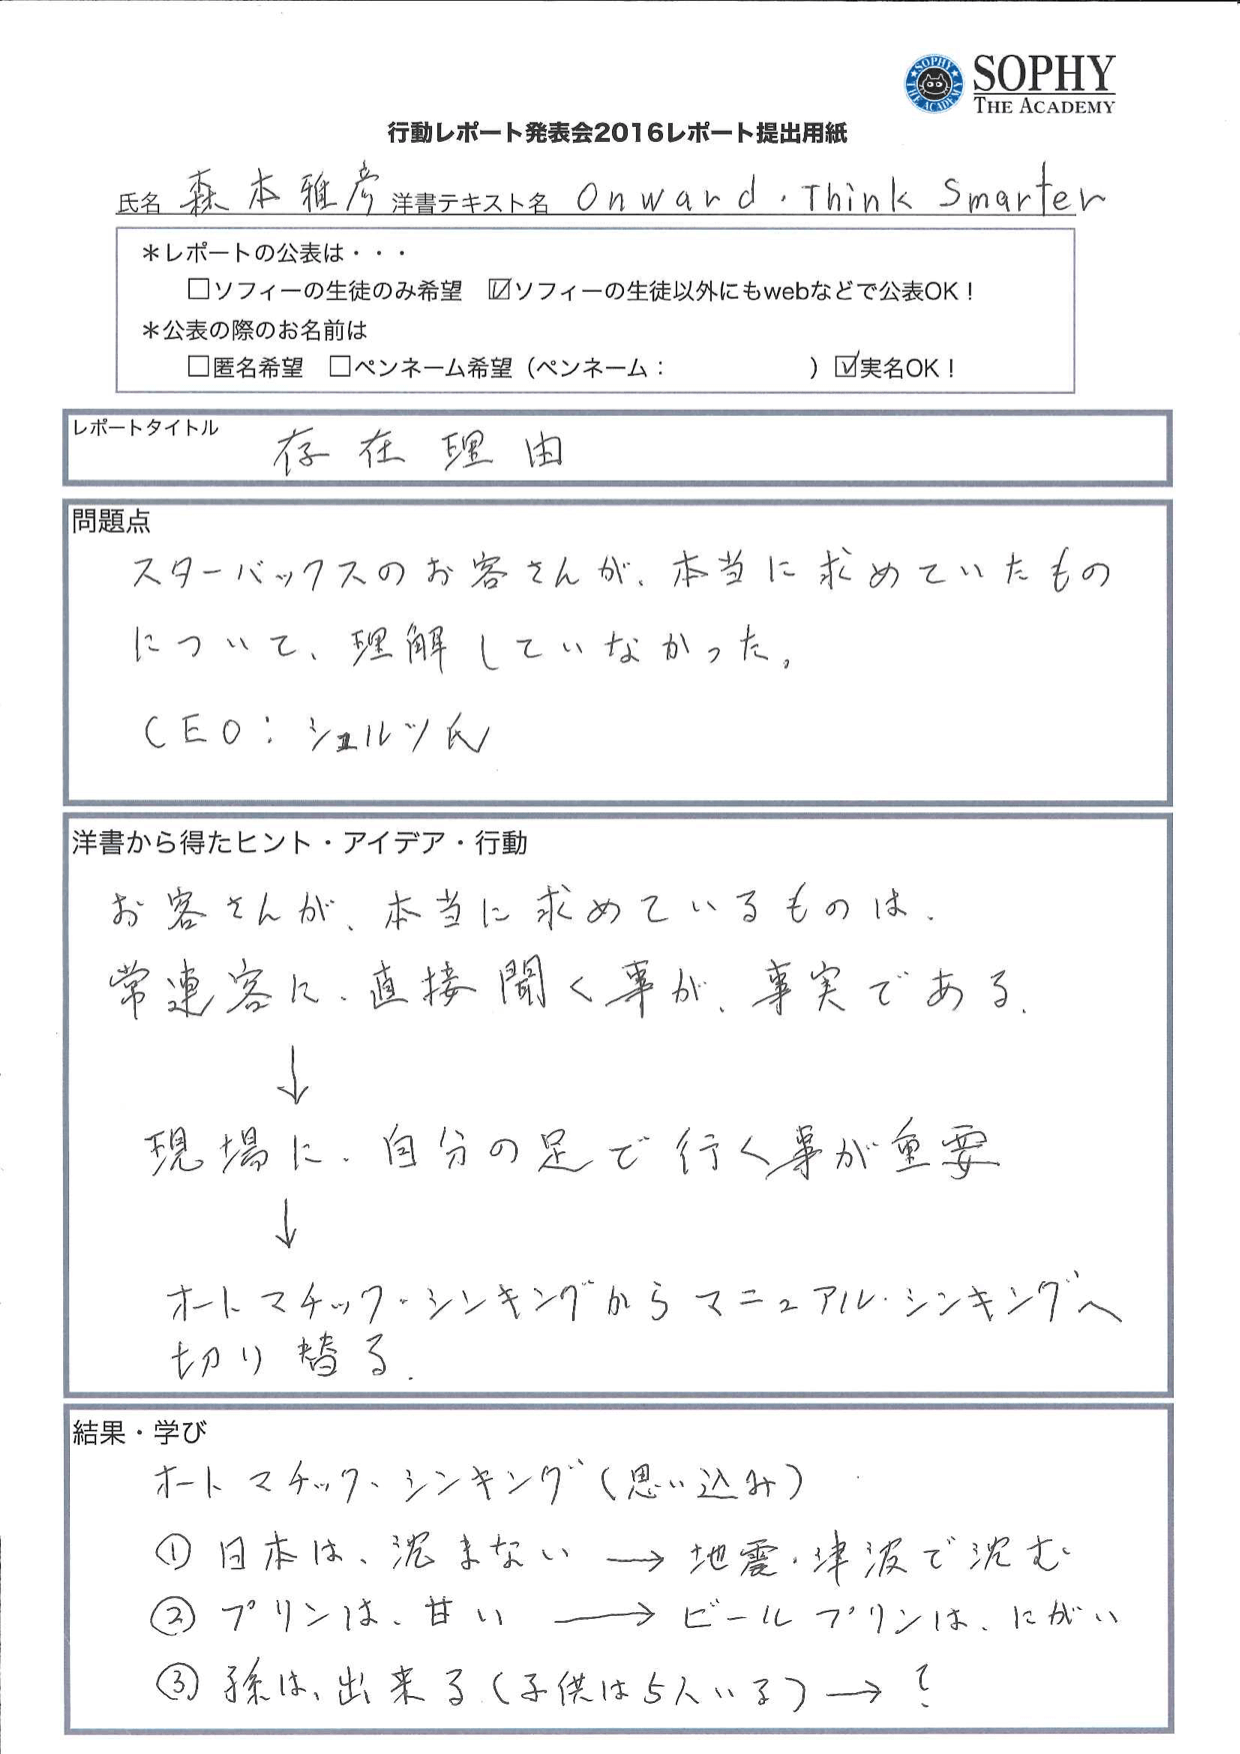 SOPHY
THE ACADEMY
SOPHY
THE ACADEMY
行動レポート発表会2016レポート提出用紙
氏名 森本雅彦 洋書テキスト名 Onward・Think Smarter
＊レポートの公表は・・・
□ソフィーの生徒のみ希望 ☑ソフィーの生徒以外にもwebなどで公表OK！
＊公表の際のお名前は
□匿名希望 □ペンネーム希望（ペンネーム： ）☑実名OK！
レポートタイトル
存在理由
問題点
スターバックスのお客さんが、本当に求めていたもの
について、理解していなかった。
CEO：シュルツ氏
洋書から得たヒント・アイデア・行動
お客さんが、本当に求めているものは、
常連客に、直接聞く事が、事実である。
↓
現場に、自分の足で行く事が重要
↓
オートマチック・シンキングからマニュアル・シンキングへ
切り替る。
結果・学び
オートマチック・シンキング（思い込み）
① 日本は、沈まない → 地震・津波で沈む
② プリンは、甘い → ビールプリンは、にがい
③ 孫は、出来る（子供は5人いる）→ ？